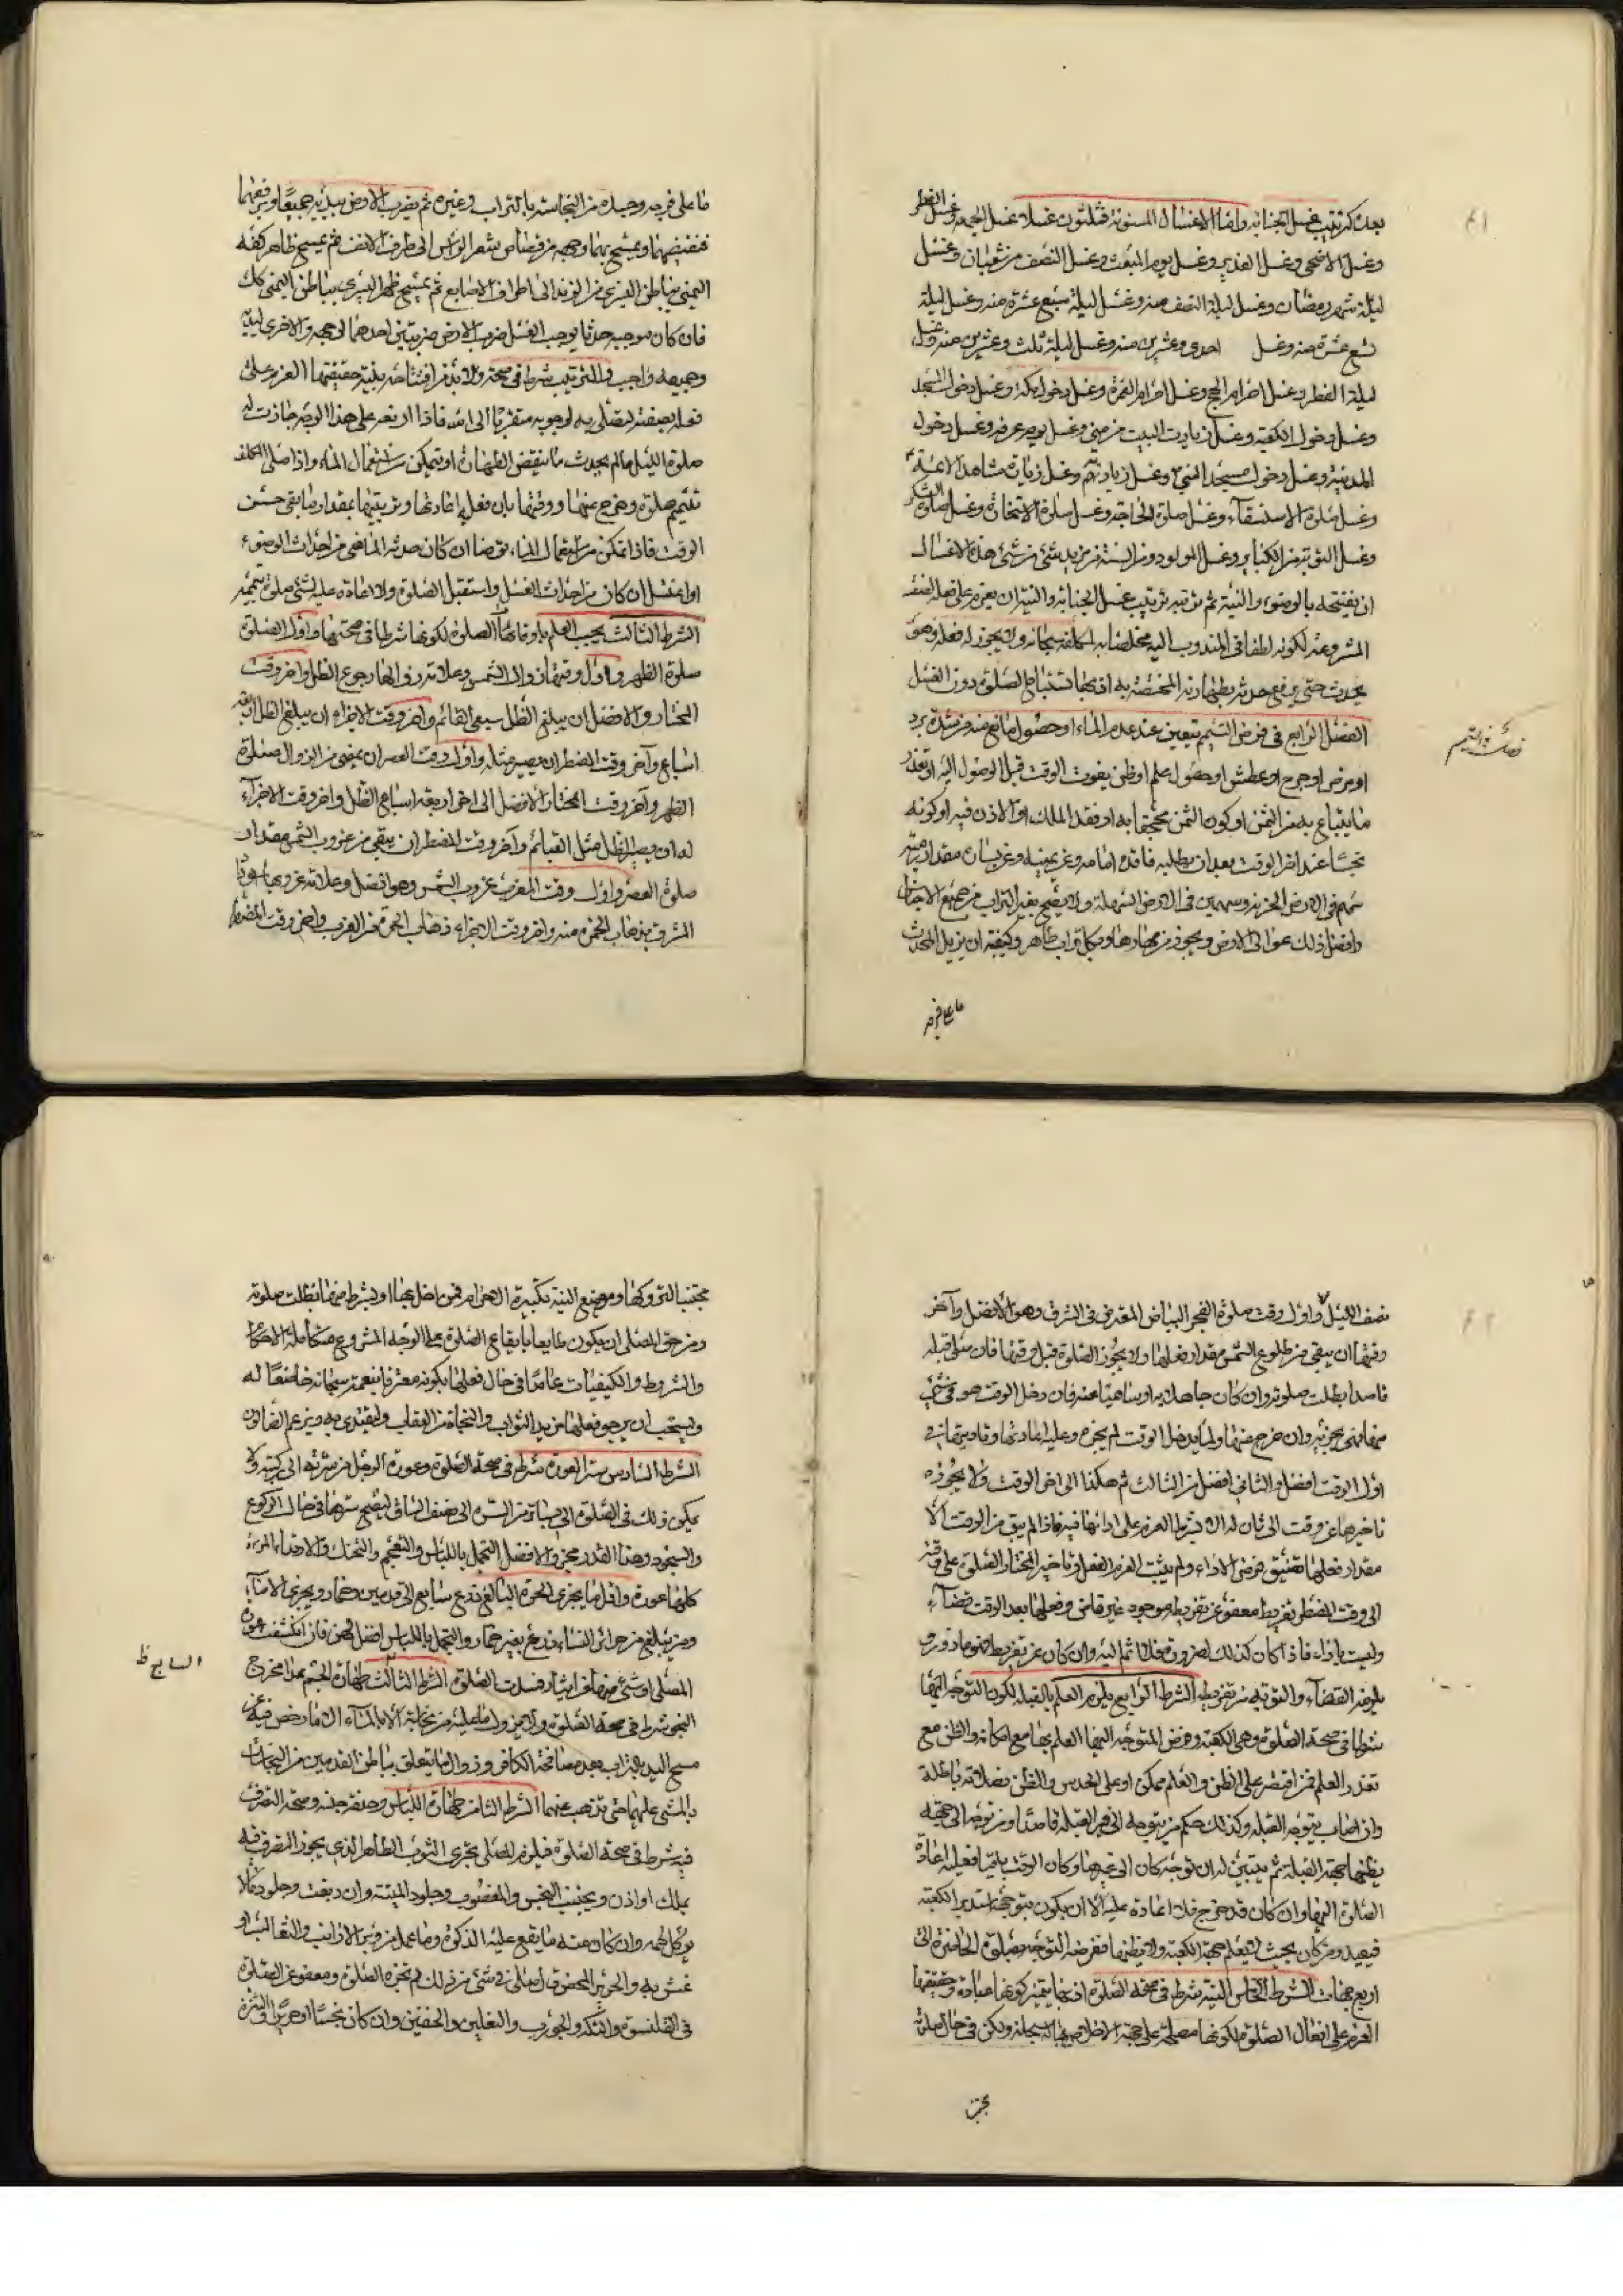 بعد كترتيب غسل الجنابة واما الاغسال المسنونة فثلثون غسلا غسل الجمعة وغسل الفطر
وغسل الاضحى وغسل الغدير وغسل يوم المبعث وغسل النصف من شعبان وغسل
ليلة شهر رمضان وغسل ليلة النصف منه وغسل ليلة سبع عشرة منه وغسل ليلة
تسع عشرة منه وغسل احدى وعشرين منه وغسل ليلة ثلث وعشرين منه وغسل
ليلة الفطر وغسل احرام الحج وغسل احرام العمرة وغسل دخول مكة وغسل دخول المسجد
وغسل دخول الكعبة وغسل زيارت البيت من منى وغسل يوم عرفه وغسل دخول
المدينة وغسل دخول مسجد النبي وغسل زيارته وغسل زيارة مشاهد الائمة
وغسل صلوة الاستسقاء وغسل صلوة الحاجة وغسل صلوة الاستخارة وغسل صلوة الشكر
وغسل التوبة من الكبائر وغسل المولود ومن السنة فمن يريد شئ من هذه الاغسال
ان يفتتحه بالوضوء والنية ثم يرتبه ترتيب غسل الجنابة والنية ان يعزم على فعله لصفته
المشروعة لكونه لطفا في المندوب اليه مخلصا به لمكلفه سبحانه ولا يجوز له فعله وهو
محدث حتى يرفع حدثه بطهارته المختصة به اذ بها تستباح الصلوة دون الغسل
الفصل الرابع في فرض التيمم يتعين عند عدم الماء او حصول مانع منه من شدة برد
او مرض او جرح او عطش او حصول علم او ظن بفوت الوقت قبل الوصول اليه او تعذر
ما يبتاع به من الثمن او كون الثمن مجحفا به او فقد الملك او الاذن فيه او كونه
نجسا عند اخر الوقت بعد ان يطلبه فاقده امامه وعن يمينه وعن يساره مقدار رمية
سهم في الارض الحزنة وسهمين في الارض السهلة ولا يصح بغير التراب من جميع الاجناس
وافضل ذلك عوالى الارض ويجوز من مهادها وبكل تراب طاهر وكيفيته ان يزيل المحدث
ما على فرجه
فصل في التيمم
ما على فرجه وجسده من النجاسة بالتراب وغيره ثم يضرب الارض بيديه جميعا ويرفعهما
فينفضهما ويمسح بهما وجهه من قصاص شعر الراس الى طرف الانف ثم يمسح ظاهر كفه
اليمنى بباطن اليسرى من الزند الى اطراف الاصابع ثم يمسح ظاهر اليسرى بباطن اليمنى كذلك
فان كان موجبه حدثا يوجب الغسل ضرب الارض ضربتين احدهما لوجهه والاخرى ليديه
وجميعه واجب والترتيب شرط في صحته ولا بد من افتتاحه بنية حقيقتها العزم على
فعله بصفته لتصلى به لوجوبه متقربا الى الله فاذا
صلوة الليل ما لم يحدث ما ينقض الطهارة او يتمكن من استعمال الماء واذا صلى المكلف
بتيمم صلوة وخرج عنها
الوقت فاذا تمكن من استعمال الماء توضا ان كان حدثه الماضي من احداث الوضوء
او اغتسل ان كان من احداث الغسل واستقبل الصلوة ولا اعادة عليه لشئ صلوة بتيمم
الشرط الثالث يجب العلم باوقات الصلوة لكونها شرطا في صحتها واول الصلوة
صلوة الظهر واول وقتها زوال الشمس وعلامة زوالها رجوع الظل واخر وقت
المختار والافضل ان يبلغ الظل سبعى القائم واخر وقت الاجزاء ان يبلغ الظل اربعة
اسباع وآخر وقت المضطر ان يصير مثله واول وقت العصر ان يمضى من الزوال صلوة
الظهر وآخر وقت المختار الافضل الى اخر اربعة اسباع الظل واخر وقت الاجزاء
له ان يصير الظل مثل القائم وآخر وقت المضطر ان يبقى من غروب الشمس مقدار
صلوة العصر واول وقت المغرب غروب الشمس وهو افضل وعلامة غروبها
المشرق بذهاب الحمرة منه واخر وقت الاجزاء ذهاب الحمرة من الغرب واخر وقت المضطر
نصف الليل واول وقت صلوة الفجر البياض المعترض في الشرق وهو الافضل وآخر
وقتها ان يبقى من طلوع الشمس مقدار فعلها ولا يجوز الصلوة قبل وقتها فان صلى قبله
قاصدا بطلت صلوته وان كان جاهلا به او ساهيا عنه فان دخل الوقت وهو في شئ
منها فهى مجزية وان خرج منها ولما يدخل الوقت لم يجزه وعليه اعادتها
اول الوقت افضل والثاني افضل من الثالث ثم هكذا الى اخر الوقت ولا يجوز
تاخيرها عن وقت الى ثان له الا بشرط العزم على ادائها فيه فاذا لم يبق من الوقت الا
مقدار فعلها تضيق فرض الاداء ولم يثبت العزم الفعل وتاخير المختار الصلوة على وقته
الى وقت المضطر تفريط معفو عنه تفريطه موجود غير قاض وفعلها بعد الوقت قضاء
وليست باداء فاذا كان كذلك لضرورة فلا اثم اليه وان كان عن تفريط فهو مازور
يلزمه القضاء والتوبة من تفريطه الشرط الرابع يلزم العلم بالقبلة لكون التوجه اليها
شرطا في صحة الصلوة وهى الكعبة وفرض المتوجه اليها العلم بها مع امكانه والظن مع
تعذر العلم فمن اقتصر على الظن والعلم ممكن او على الحدس والظن فصلاته باطلة
وان اصاب بتوجه القبلة وكذلك حكم من يتوجه الى غير القبلة قاصدا ومن توجه الى جهة
يظنها جهة القبلة ثم يتبين له ان توجه كان الى غيرها وكان الوقت باقيا فعليه اعادة
الصلوة اليها وان كان قد خرج فلا اعادة عليه الا ان يكون بتوجهه استدبر الكعبة
فيعيد ومن كان بحيث لا يعلم جهة الكعبة ولا يظنها ففرضه التوجه بصلوة الحاضرة الى
اربع جهات الشرط الخامس النية شرط في صحة الصلوة اذ بها يتميز كونها عبادة وحقيقتها
العزم على افعال الصلوة لكونها مصلحة على جهة الاخلاص بها له سبحانه ويكون في حال صلوته
مجتنبا
مجتنبا لتروكها وموضع النية تكبيرة الاحرام فمن اخل بها او بشرط منها بطلت صلوته
ومن حق المصلى ان يكون طايعا بايقاع الصلوة على الوجه المشروع متكاملة الاحكام
والشروط والكيفيات عامدا في حال فعلها بكونه معترفا بنعمته سبحانه خاضعا له
ويستحب ان يرجو بفعلها مزيد الثواب والنجاة من العقاب وليقتدى به ويرغم الضالون
الشرط السادس ستر العورة شرط في صحة الصلوة وعورة الرجل من سرته الى ركبتيه ولا
يمكن ذلك في الصلوة الا بساتر من السرة الى نصف الساق ليصح سترها في حال الركوع
والسجود وهذا القدر مجز والافضل التجمل باللباس والتعمم والتحنك والارتداء والمرءة
كلها عورة واقل ما يجزى الحرة البالغ درع سابغ الى قدمين وخمار ويجزى الاماء
ومن لم يبلغ من حرائر النساء درع بغير خمار والتجمل باللباس افضل لهن فان انكشف عورة
المصلى او شئ منها فسدت الصلوة الشرط الثالث طهارة الجسم
السابع ظ
مسح اليد بالتراب بعد مصافحة الكافر وزوال ما يتعلق بباطن القدمين من النجاسات
بالمشى عليهما حتى تذهب عنهما الشرط الثامن طهارة اللباس وصفة جنسه وصحة التصرف
فيه شرط في صحة الصلوة فيلزم المصلى تحرى الثوب الطاهر الذى يجوز التصرف فيه
بملك او اذن ويجتنب النجس والمغصوب وجلود الميتة وان دبغت وجلود ما لا
يوكل لحمه وان كان منه ما يقع عليه الذكوة وما عمل من وبر الارانب والثعالب او
غش به والحرير المحض فان صلى في شئ من ذلك لم تجزه الصلوة ومعفو عن الصلوة
في القلنسوة والتكة والجورب والنعلين والخفين وان كان نجسا او حريرا والتنزه